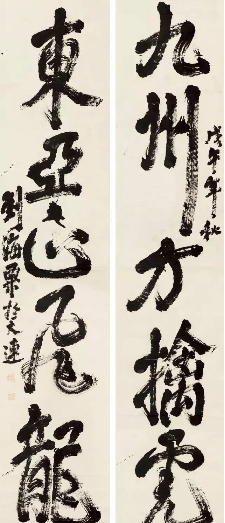 九州方擒虎
戊午年秋
東亞正飛龍
劉海粟於大連